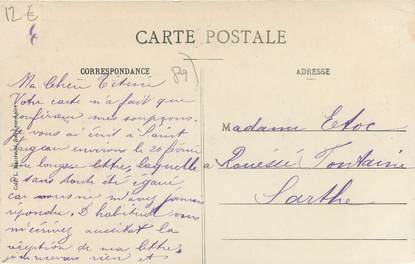 12 €
CARTE POSTALE
CORRESPONDANCE
89
ADRESSE
Ma Chère Titine
Votre carte n'a fait que
confirmer mes soupçons.
Je vous ai écrit à Saint
Fargeau environ le 20 février
une longue lettre, laquelle
a sans doute été égarée,
car vous ne m'avez jamais
répondu. D'habitude vous
m'écrivez aussitôt la
réception de ma lettre,
je ne recevais rien et
Madame Etoc
à Rouessé Fontaine
Sarthe